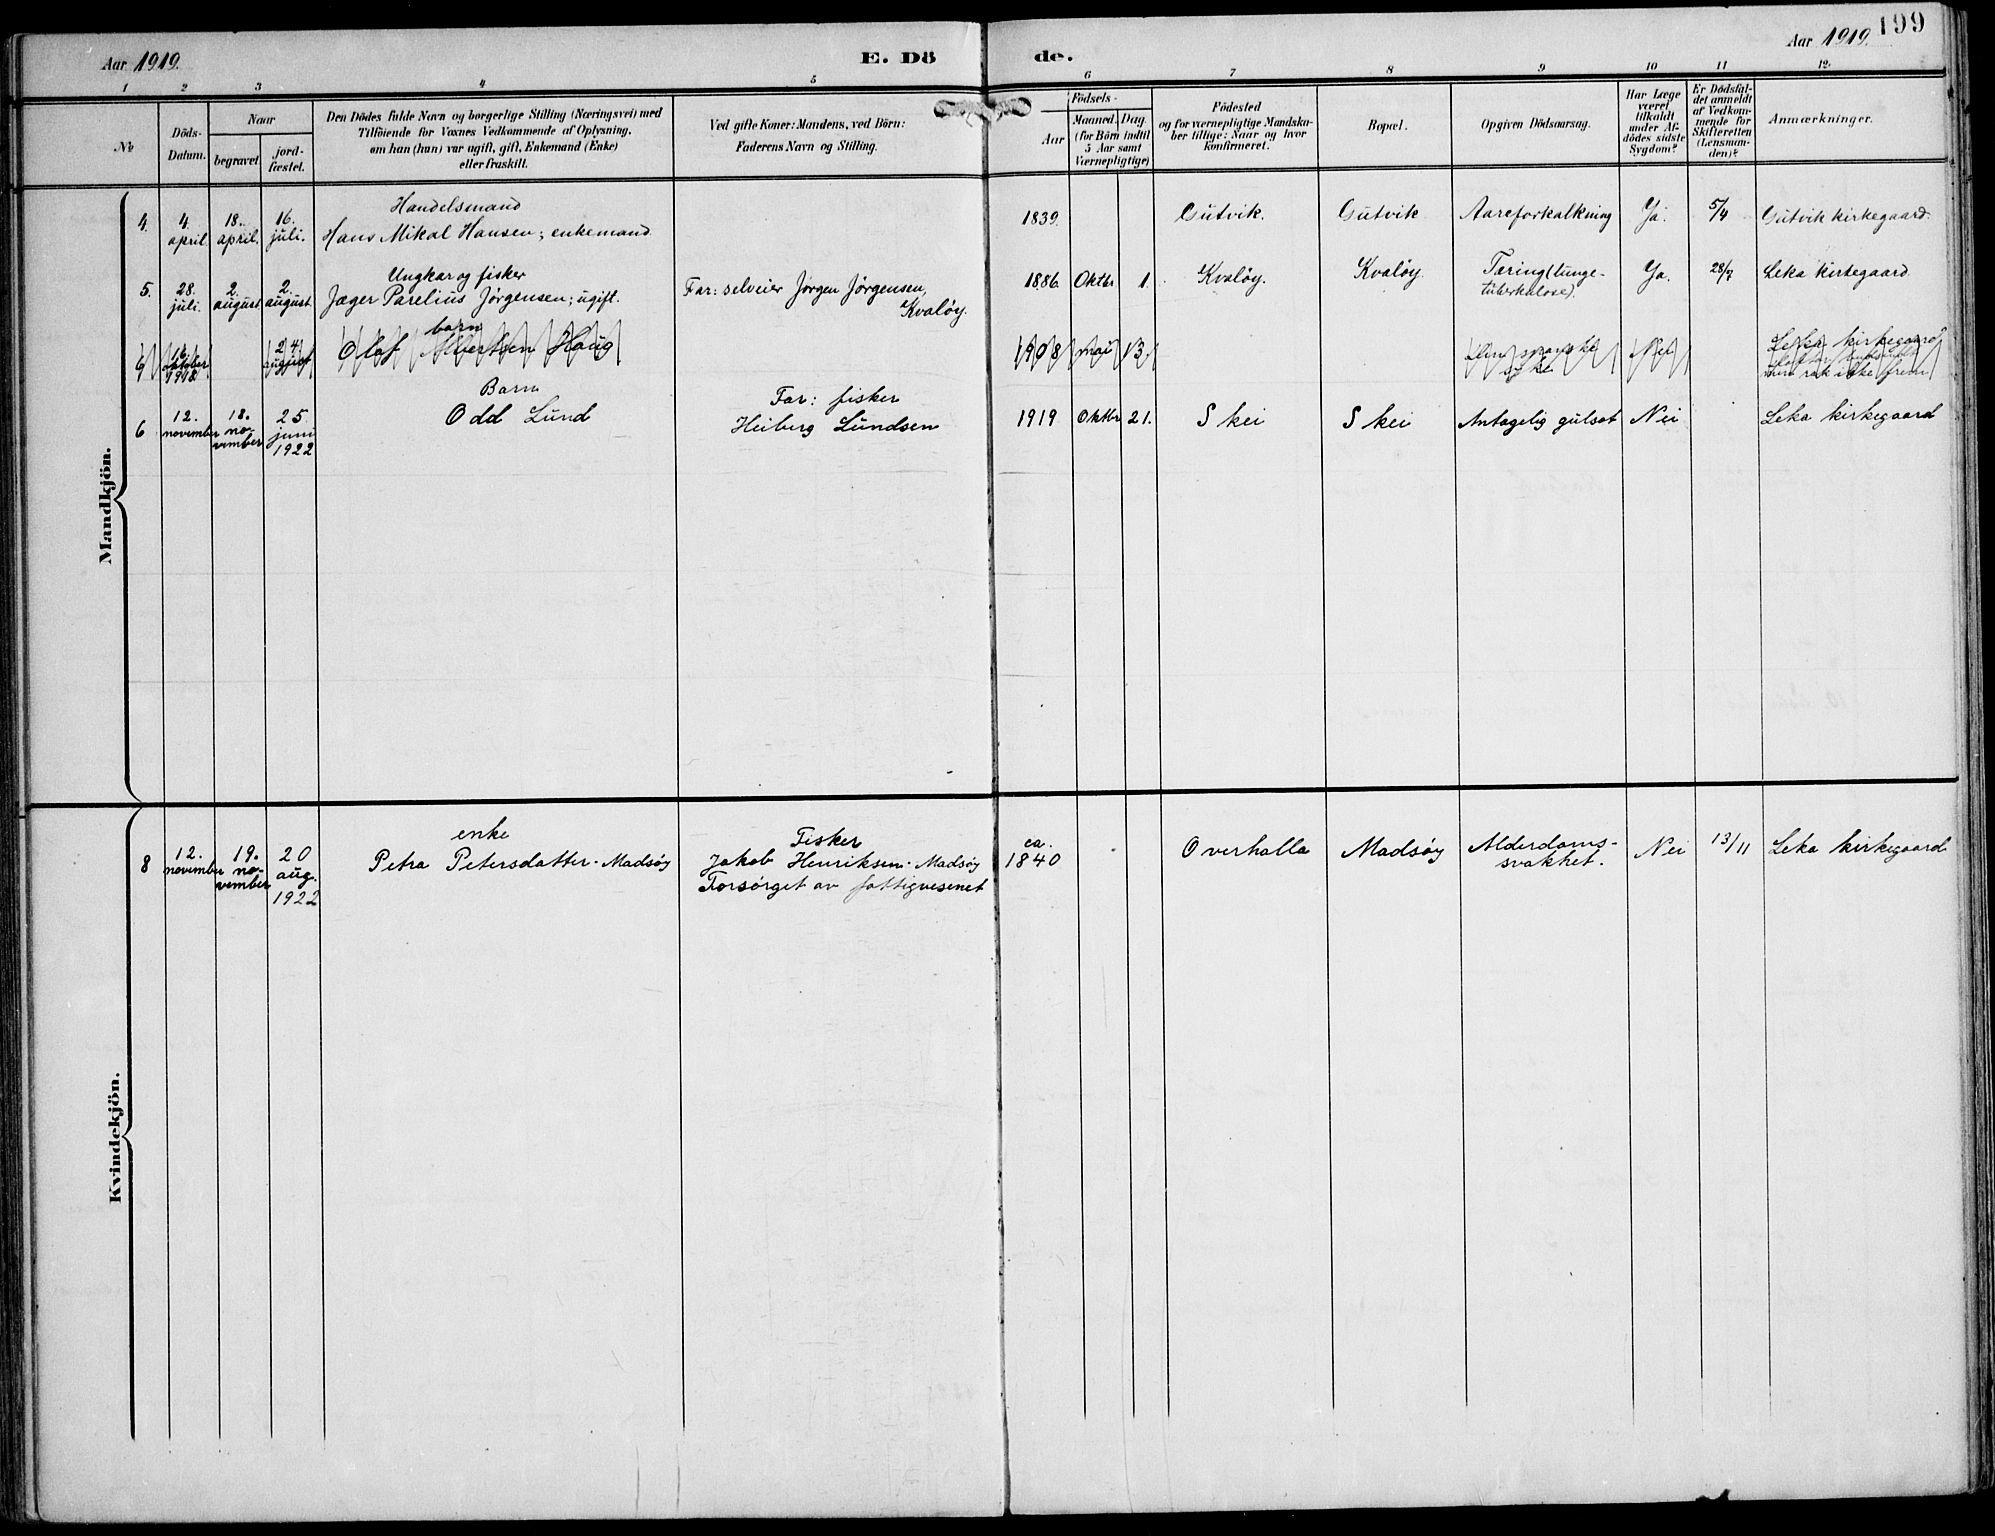 Aar 1919.
E. Dö
de.
Aar 1919.
199
1 2 3 4 5 6 7 8 9 10 11 12.
No
Döds-
Datum.
Naar
begravet
jord-
fæstet.
Den Dödes fulde Navn og borgerlige Stilling (Næringsvei) med
Tilföiende for Voxnes Vedkommende af Oplysning,
om han (hun) var ugift, gift, Enkemand (Enke)
eller fraskilt.
Ved gifte Koner: Mandens, ved Börn:
Faderens Navn og Stilling.
Födsels-
Aar
Maaned.
Dag.
(for Börn indtil
5 Aar samt
Værnepligtige)
Födested
og for værnepligtige Mandska-
ber tillige: Naar og hvor
konfirmeret.
Bopæl.
Opgiven Dödsaarsag.
Har Læge
været
tilkaldt
under Af-
dödes sidste
Sygdom?
Er Dödsfal-
det anmeldt
af Vedkom-
mende for
Skifteretten
(Lensman-
den)?
Anmærkninger.
Mandkjön.
4. 4. april. 18. april. 16. juli.
Handelsmand
Hans Mikal Hansen; enkemand.
1839. Gutvik. Gutvik Aareforkalkning Ja. 5/4 Gutvik kirkegaard.
5. 28. juli. 2. august. 2. august.
Ungkar og fisker
Jæger Parelius Jörgensen; ugift.
Far: selveier Jörgen Jörgensen,
Kvalöy.
1886. Oktbr 1. Kvalöy. Kvalöy. Tæring (lunge-
tuberkulose). Ja. 28/7 Leka kirkegaard.
6 oktober 1918. 24 august
barn
Olaf Albertsen Haug
1908 mai 13 Den spanske
syke Nei
Leka kirkegaard
6 12. november 18. no-
vember 25 juni 1922
Barn
Odd Lund
Far: fisker
Heiberg Lundsen
1919 Oktbr 21. Skei Skei Antagelig gulsot Nei Leka kirkegaard
Kvindekjön.
8 12. november 19. no-
vember 20 aug. 1922
enke
Petra Petersdatter - Madsöy
Fisker
Jakob Henriksen - Madsöy
Forsörget av fattigvesenet
ca.
1840 Overhalla Madsöy Alderdoms-
svakhet. Nei 13/11 Leka kirkegaard